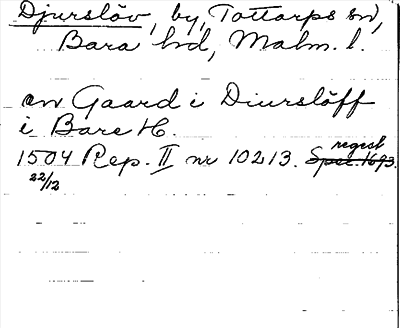 Djurslöv, by, Tottarps sn,
Bara hd, Malm. l.
en Gaard i Diurslöff
i Bare H.
1504 Rep. II nr 10213. Spec. 1693. regest
22/12